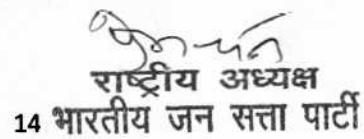 राष्ट्रीय अध्यक्ष
14 भारतीय जन सत्ता पार्टी